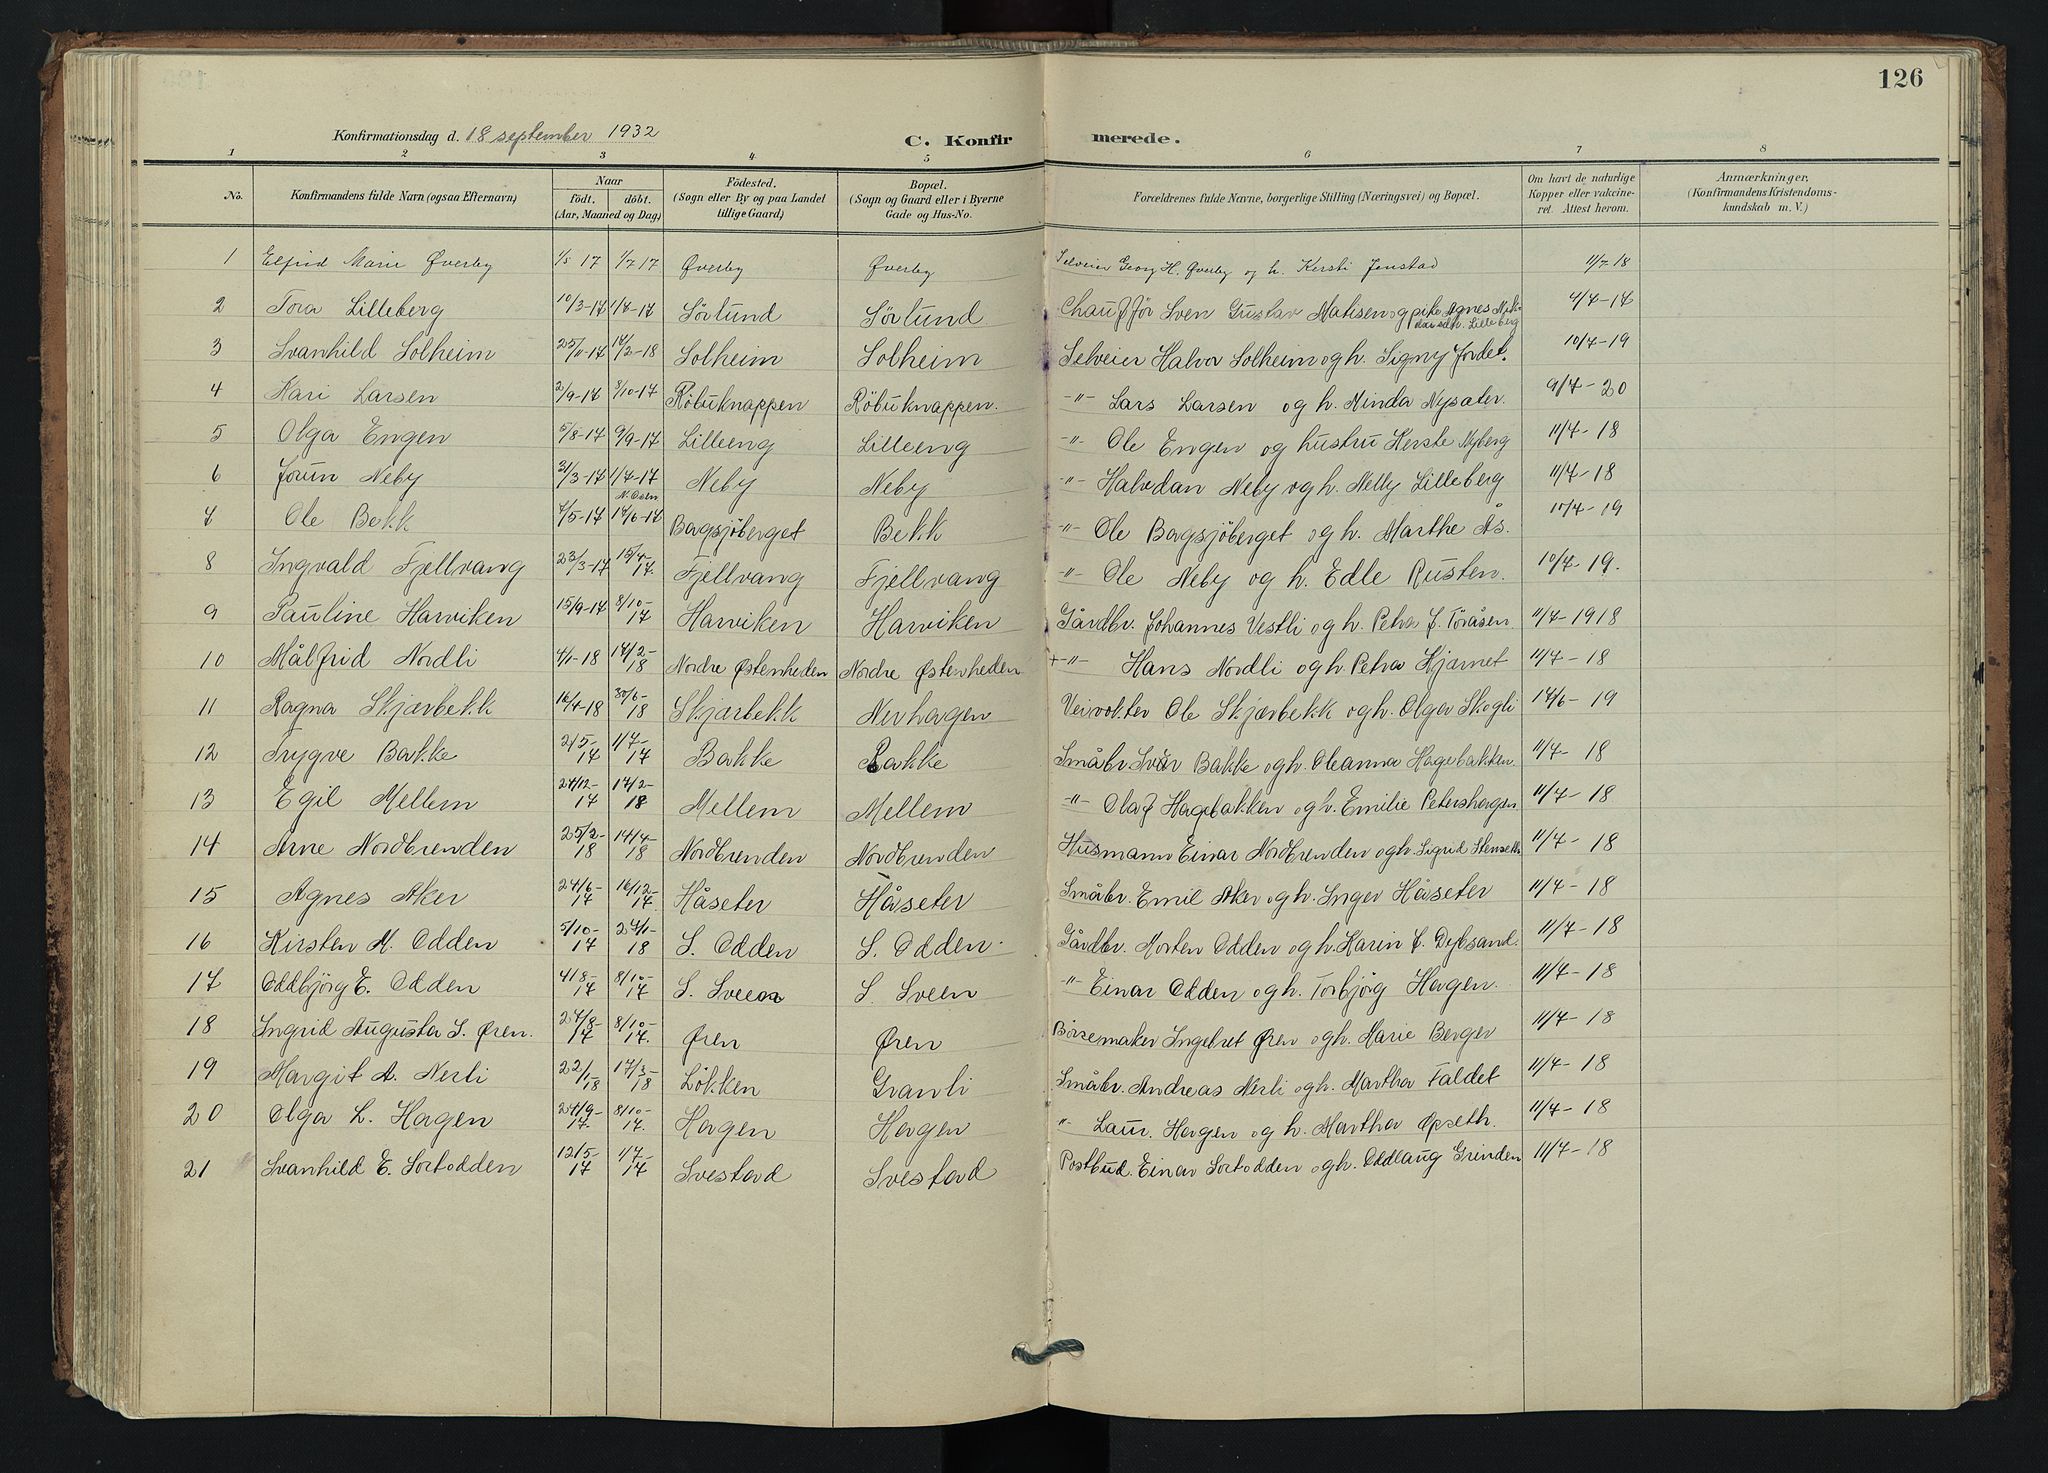 126
Konfirmationsdag d. 18 september 1932
C. Konfirmerede.
1 2 3 4 5 6 7 8
No. Konfirmandens fulde Navn (ogsaa Efternavn) Naar födt. döbt. (Aar, Maaned og Dag) Födested. (Sogn eller By og paa Landet tillige Gaard) Bopæl. (Sogn og Gaard eller i Byerne Gade og Hus-No. Forældrenes fulde Navne, borgerlige Stilling (Næringsvei) og Bopæl. Om havt de naturlige Kopper eller vakcineret. Attest herom. Anmærkninger. (Konfirmandens Kristendomskundskab m. V.)
1 Elfrid Marie Øverby 1/5 17 1/7 17 Øverby Øverby Selveier Georg H. Øverby og h. Kersti Jenstad 11/7-18
2 Tora Lilleberg 10/3-17 1/7-17 Sörlund Sörlund Chaufför Sven Gustav Matisen og pike Agnes Lilleberg
3 Svanhild Solheim 25/11-17 14/2-18 Solheim Solheim Selveier Halvor Solheim og h. Signy Jordet. 10/7-19
4 Kari Larsen 2/9-17 3/10-17 Röbuknappen Röbuknappen. -"- Lars Larsen og h. Minda Nysæter. 9/7-20
5 Olga Engen 5/8-17 9/9-17 Lilleeng Lilleeng -"- Ole Engen og hustru Herste Nyberg 11/7-18
6 Jorun Neby 31/3-17 1/7-17 Neby Neby -"- Halvdan Neby og h. Nelly Lilleberg 11/7-18
N. Osen
7 Ole Bekk 4/5-17 17/6-17 Borgsjöberget Bekk -"- Ole Borgsjöberget og h. Marthe Ås. 10/7-19
8 Ingvald Fjellvang 23/3-17 15/4-17. Fjellvang Fjellvang -"- Ole Neby og h. Edle Rusten. 10/7-19.
9 Pauline Harviken 15/9-17 8/10-17 Harviken Harviken Gårdbr. Johannes Vestli og h. Petra f. Töråsen. 11/7-1918
10 Målfrid Nordli 4/1-18 14/2-18 Nordre Østenheden Nordre Østenheden +-"- Hans Nordli og h. Petra Kjærnet 11/7-18
11 Ragna Skjærbekk 16/4-18 30/6-18 Skjærbekk Nerhagen Veivokter Ole Skjærbekk og h. Olga Skogli 14/6-19
12 Trygve Bakke 2/5-17 1/7-17 Bakke Bakke Småbr. Bakke og h. Oleanna Hagebakken. 11/7-18
13 Egil Mellem 24/12-17 14/2-18 Mellem Mellem -"- Olaf Hagebakken og h. Emilie Petershagen 11/7-18
14 Arne Nordbrenden 25/2-18 14/4-18 Nordbrenden Nordbrenden Husmann Einar Nordbrenden og h. Sigrid Stenseth 11/7-18
15 Agnes Aker 24/6-17 16/12-17. Håseter Håseter Småbr. Emil Aker og h. Inger Håseter 11/7-18
16 Kirsten M. Odden 5/10-17 24/1-18 S. Odden S. Odden. Gårdbr. Morten Odden og h. Karin f. Dybsand. 11/7-18
17 Oddbjörg E. Odden 4/8-17 8/10-17 S. Sveen S. Sveen -"- Einar Odden og h. Torbjörg Hagen. 11/7-18
18 Ingrid Augusta S. Øren. 24/8-17 8/10-17. Øren Øren Börsemaker Ingebret Øren og h. Marie Berger 11/7-18
19 Margit A. Nerli 22/1-18 17/3-18 Lökken Granli Småbr. Andreas Nerli og h. Martha Faldet 11/7-18
20 Olga L. Hagen 24/9-17. 8/10-17. Hagen Hagen " Laur. Hagen og h. Martha Opseth. 11/7-18
21 Svanhild E. Sorktodden 12/5-17 1/7-17 Svestad Svestad Postbud. Einar Sorktodden og h. Oddlaug Grinden 11/7-18